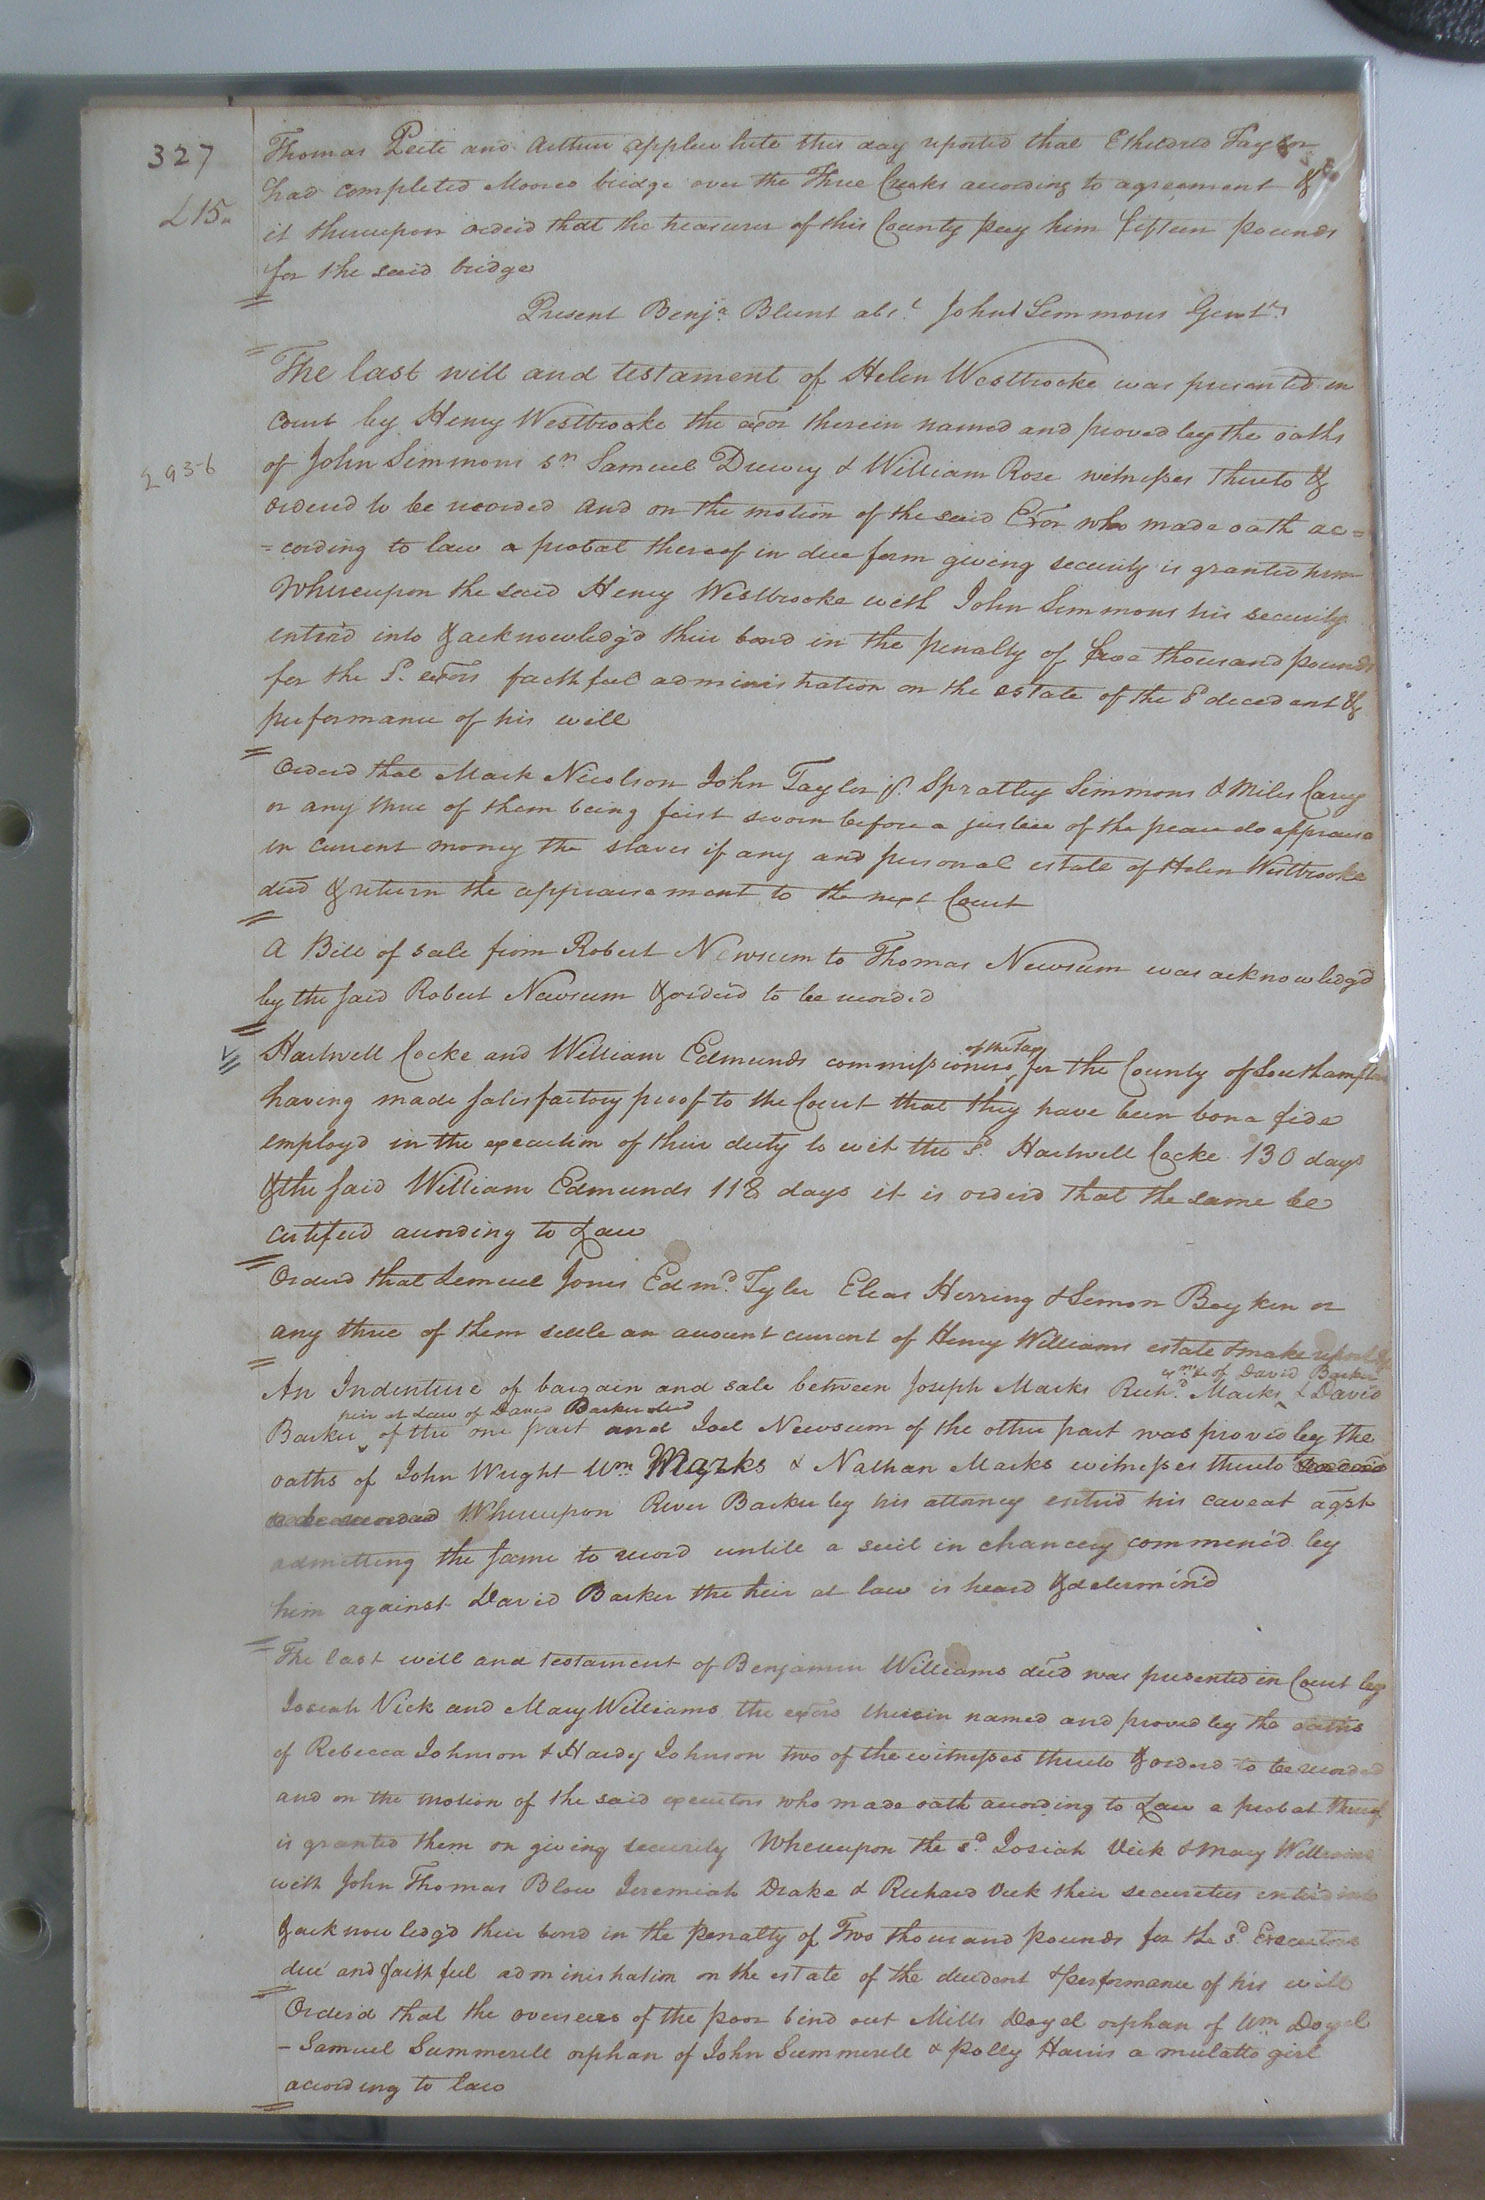 327
Thomas Peete and Arthur Applewhite this day reported that Etheldred Taylor
had completed Moores bridge over the Three Creeks according to agreement &
£15..
it thereupon orderd that the treasurer of this County pay him fifteen pounds
for the said bridge
Present Benja. Blunt abst. John Simmons Gent.
The last will and testament of Helen Westbrooke was presented in
Court by Henry Westbrooke the exor therein named and proved by the oaths
2935-6
of John Simmons sn Samuel Drewry & William Rose witnesses thereto &
ordered to be recorded and on the motion of the said Exor who made oath ac=
=cording to law a probat thereof in due form giving security is granted him
Whereupon the said Henry Westbrooke with John Simmons his security
enter'd into & acknowledg'd their bond in the penalty of five thousand pounds
for the Sd. exors faithfull administration on the estate of the decedent &
performance of his will
Orderd that Mark Nicolson John Taylor jr. Spratley Simmons & Miles Cary
or any three of them being first sworn before a justice of the peace do appraise
in current money the slaves if any and personal estate of Helen Westbrooke
decd & return the appraisement to the next Court
A Bill of sale from Robert Newsum to Thomas Newsum was acknowledg'd
by the said Robert Newsum & orderd to be recorded
of the Tax
Hartwell Cocke and William Edmunds commissioners for the County of Southampton
having made satisfactory proof to the Court that they have been bona fide
employd in the execution of their duty to wit the sd. Hartwell Cocke 130 days
& the said William Edmunds 118 days it is orderd that the same be
certified according to Law
Orderd that Lemuel Jones Edmd. Tyler Elias Herring & Simon Boykin or
any three of them settle an account current of Henry Williams estate & make report &c
of David Barker
An Indenture of bargain and sale between Joseph Marks Richd. Marks & David
heir at Law of David Barker decd
Barker of the one part and Joel Newsum of the other part was proved by the
oaths of John Wright Wm Marks & Nathan Marks witnesses thereto
to be recorded Whereupon River Barker by his attorney enter'd his caveat agst
admitting the same to record untill a suit in chancery commenc'd by
him against David Barker the heir at law is heard & determin'd
The last will and testament of Benjamin Williams decd was presented in Court by
Josiah Vick and Mary Williams the exors therein named and proved by the oaths
of Rebecca Johnson & Hardy Johnson two of the witnesses thereto & orderd to be recorded
and on the motion of the said executors who made oath according to Law a probat thereof
is granted them on giving security Whereupon the sd. Josiah Vick & Mary Williams
with John Thomas Blow Jeremiah Drake & Richard Vick their securities enter'd into
& acknowledg'd their bond in the penalty of Two thousand pounds for the sd. Executors
due and faithfull administration on the estate of the decedent & performance of his will
Orderd that the overseers of the poor bind out Mills Doyel orphan of Wm Doyel
- Samuel Summerell orphan of John Summerell & Polly Harris a mulatto girl
according to law